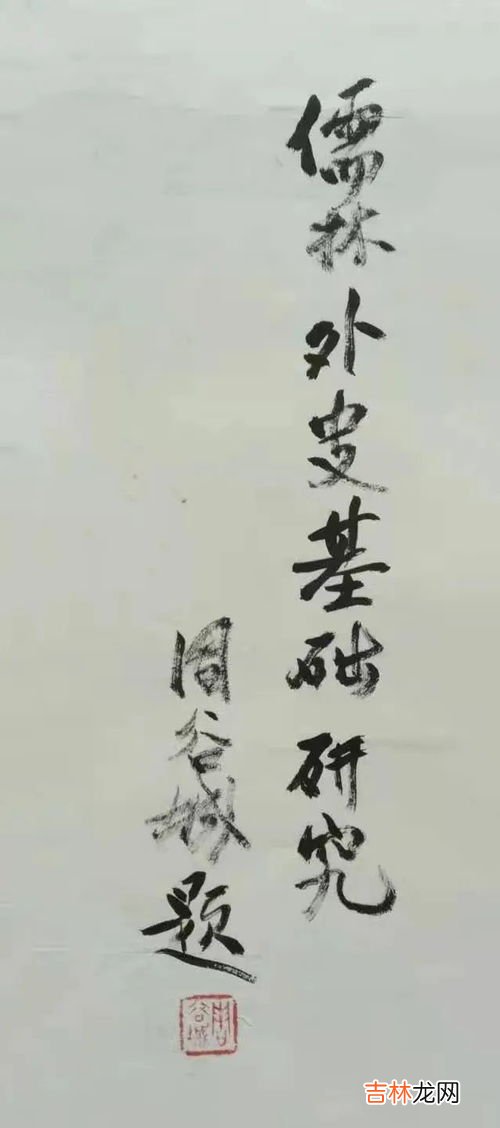 儒林外史基础研究
周谷城题
周谷城
吉林龙网